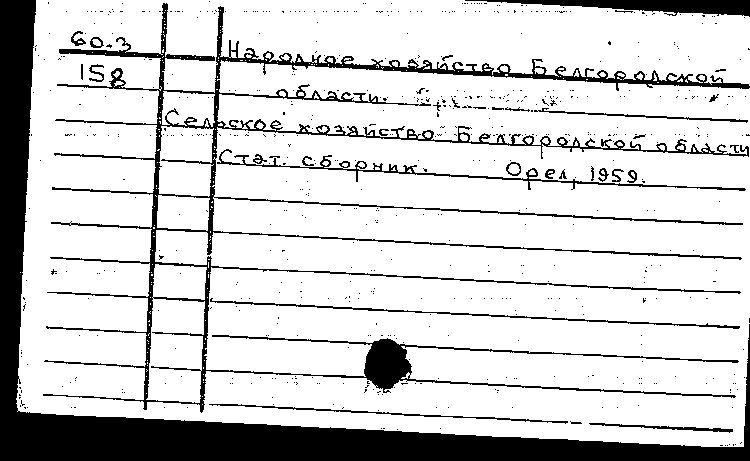 60.3
Народное хозяйство Белгородской
158
области.
Сельское хозяйство Белгородской области
Стат. сборник. Орел, 1959.